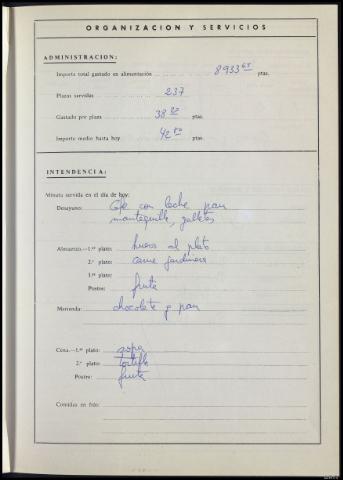 ORGANIZACION Y SERVICIOS
ADMINISTRACION:
Importe total gastado en alimentación 8933 65 ptas.
Plazas servidas 237
Gastado por plaza 38 ptas.
Importe medio hasta hoy 42 ptas.
INTENDENCIA:
Minuta servida en el día de hoy:
Desayuno: Cafe con leche pan
mantequilla, galletas
Almuerzo.—1.er plato: huevos al plato
2.º plato: carne jardinera
3.er plato:
Postre: fruta
Merienda: chocolate y pan
Cena.—1.er plato: sopa
2.º plato: tortilla
Postre: fruta
Comidas en frío: